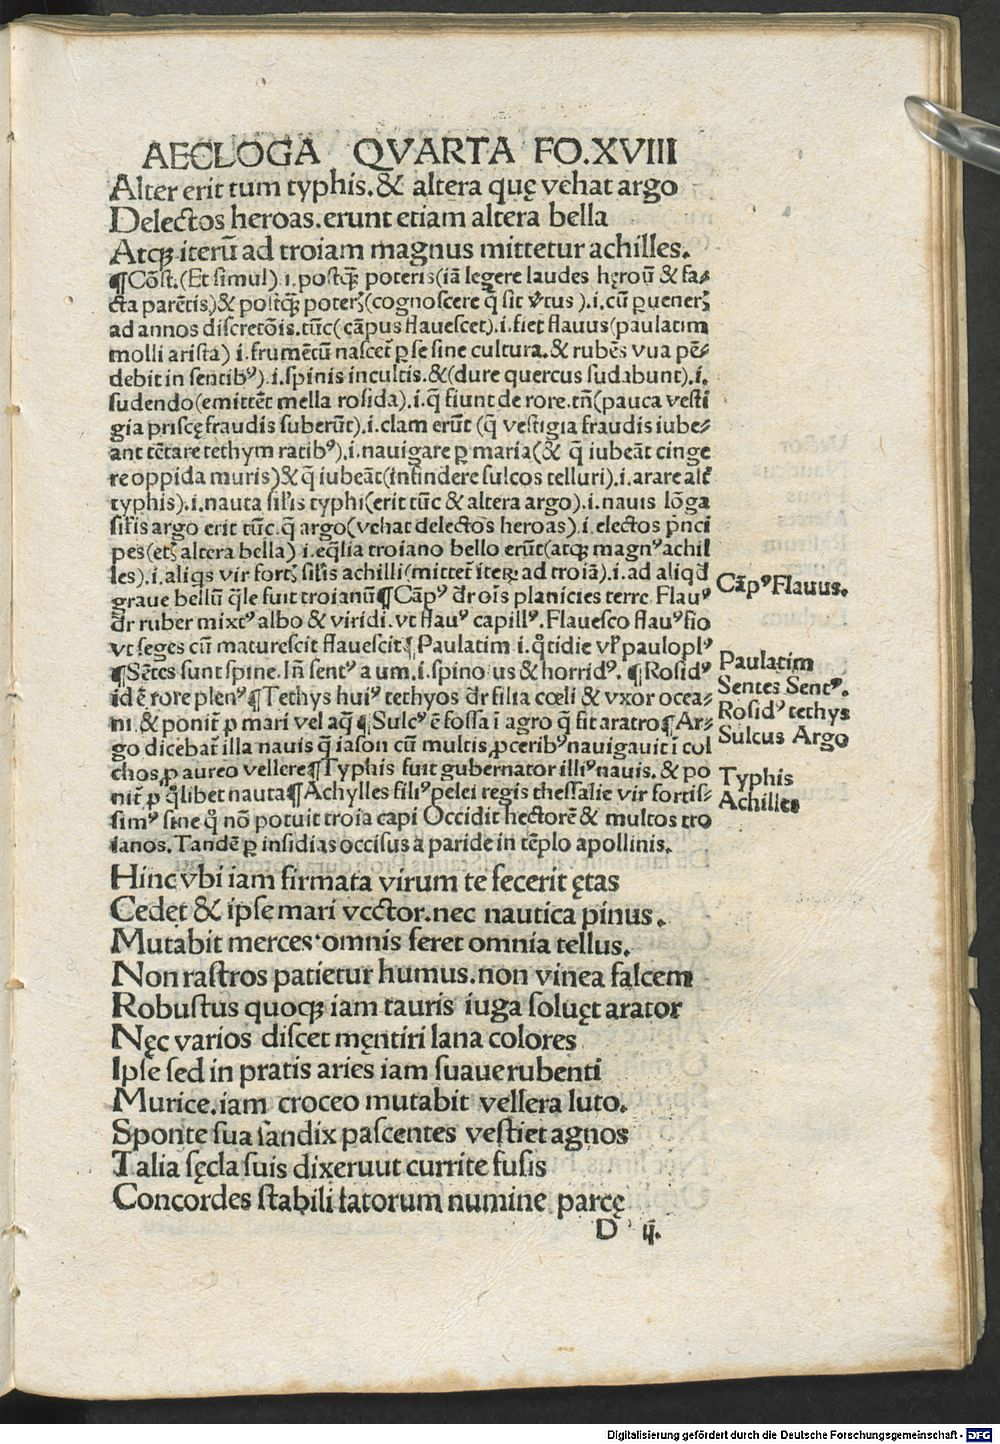 AECLOGA QVARTA FO.XVIII
Alter erit tum typhis.& altera quę vehat argo
Delectos heroas.erunt etiam altera bella
Atqꝫ iterū ad troiam magnus mittetur achilles.
¶Cōst.(Et simul) .i.postꝗꝫ poteris(iā legere laudes hęroū & fa-
cta parētis)& postꝗꝫ poterꝭ(cognoscere q̄ sit v̓tus ).i.cū ꝑuenerꝭ
ad annos discretōis.tūc(cāpus flauescet).i.fiet flauus(paulatim
molli arista) i.frumētū nascet̄ ꝑ se sine cultura.& rubēs vua pē-
debit in sentibꝰ).i.spinis incultis.&(dure quercus sudabunt).i.
sudendo(emittēt mella rosida).i.q̄ fiunt de rore.tn̄(pauca vesti
gia priscę fraudis suberūt).i.clam erūt (q̄ vestigia fraudis iube-
ant tētare tethym ratibꝰ).i.nauigare ꝑ maria(& q̄ iubeāt cinge
re oppida muris)& q̄ iubeāt(infindere sulcos telluri).i.arare alt̄
typhis).i.nauta sil̄is typhi(erit tūc & altera argo).i.nauis lōga
sil̄is argo erit tūc.q̄ argo(vehat delectos heroas).i.electos p̄nci
pes(etꝭ altera bella) i.eq̄lia troiano bello erūt(atqꝫ magnꝰ achil
les).i.aliqs vir fortꝭ sil̄is achilli(mittet̄ iteꝝ ad troiā).i.ad aliqd̄
graue bellū q̄le fuit troianū¶Cāpꝰ dr̄ oīs planicies terre Flauꝰ
dr̄ ruber mixtꝰ albo & viridi.vt flauꝰ capillꝰ.Flauesco flauꝰ fio
vt seges cū maturescit flauescit¶Paulatim i.q̊tidie vl̄ pauloplꝰ
¶Sētes sunt spine.In̄ sentꝰ a um.i.spino us & horridꝰ. ¶Rosidꝰ
id ē rore plenꝰ¶Tethys huiꝰ tethyos dr̄ filia cœli & vxor ocea-
ni.& ponit̄ ꝓ mari vel aq̄¶Sulcꝰ ē fossa ī agro q̄ fit aratro¶Ar-
go dicebat̄ illa nauis q̄ iason cū multis ꝓceribꝰ nauigauit ī col
chos ꝓ aureo vellere¶Typhis fuit gubernator illiꝰ nauis.& po
nit̄ ꝓ q̊libet nauta¶Achylles filiꝰ pelei regis thessalie vir fortis-
simꝰ sine q̊ nō potuit troia capi Occidit hectorē & multos tro
ianos.Tandē ꝑ insidias occisus a paride in tēplo apollinis.
Cāpꝰ Flauus.
Paulatim
Sentes Sentꝰ.
Rosidꝰ tethys
Sulcus Argo
Typhis
Achilles
Hinc vbi iam firmata virum te fecerit ętas
Cedet & ipse mari vector.nec nautica pinus.
Mutabit merces·omnis feret omnia tellus.
Non rastros patietur humus.non vinea falcem
Robustus quoqꝫ iam tauris iuga soluęt arator
Nęc varios discet męntiri lana colores
Ipse sed in pratis aries iam suaue rubenti
Murice.iam croceo mutabit vellera luto.
Sponte sua sandix pascentes vestiet agnos
Talia sęcla suis dixeruut currite fusis
Concordes stabili fatorum numine parcę
D ij.
Digitalisierung gefördert durch die Deutsche Forschungsgemeinschaft - DFG